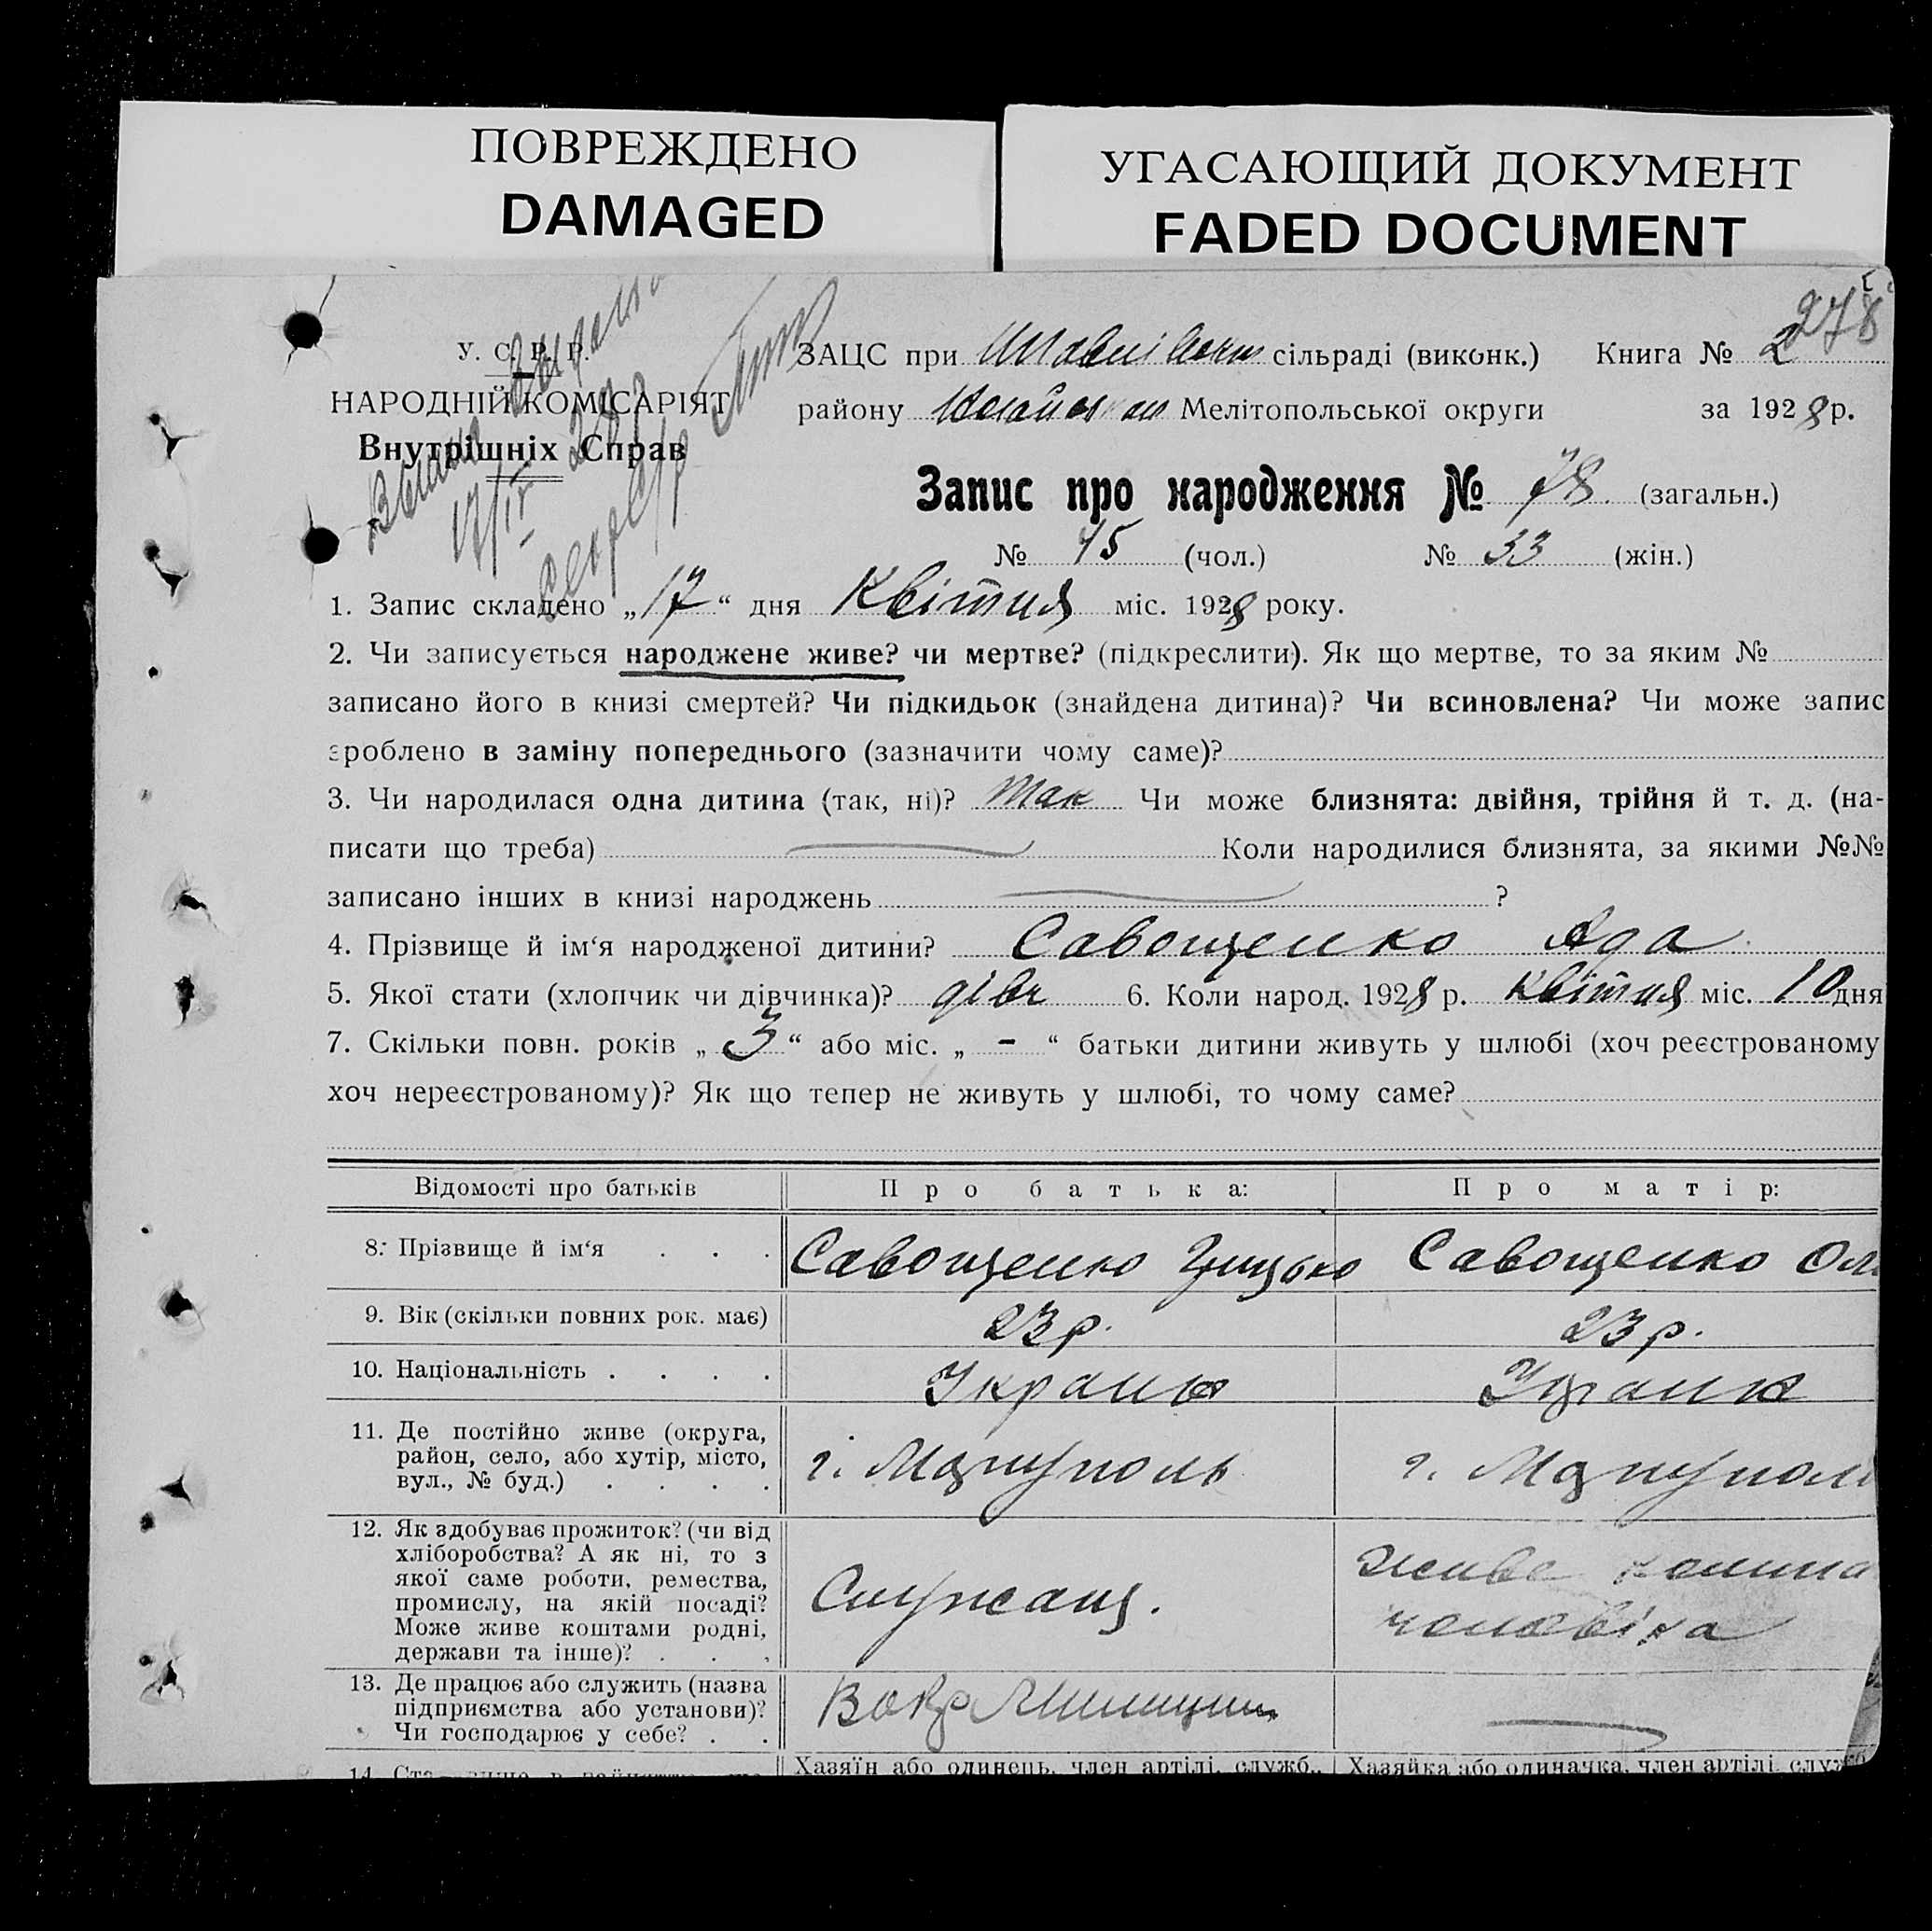 ПОВРЕЖДЕНО
DAMAGED
УГАСАЮЩИЙ ДОКУМЕНТ
FADED DOCUMENT
278
У. С. Р. Р.
НАРОДНІЙ КОМІСАРІЯТ
Внутрішніх Справ
17/IV
ЗАЦС при сільраді (виконк.) Книга № 2
району Мелітопольської округи за 1928 р.
Запис про народження № 78 (загальн.)
№ 45 (чол.) № 33 (жін.)
1. Запис складено „17“ дня Квітня міс. 1928 року.
2. Чи записується народжене живе? чи мертве? (підкреслити). Як що мертве, то за яким №
записано його в книзі смертей? Чи підкидьок (знайдена дитина)? Чи всиновлена? Чи може запис
зроблено в заміну попереднього (зазначити чому саме)?
3. Чи народилася одна дитина (так, ні)? Так Чи може близнята: двійня, трійня й т. д. (на-
писати що треба) Коли народилися близнята, за якими №№
записано інших в книзі народжень ?
4. Прізвище й ім‘я народженої дитини? Савощенко Ада
5. Якої стати (хлопчик чи дівчинка)? дівч 6. Коли народ. 1928 р. Квітня міс. 10 дня
7. Скільки повн. років „3“ або міс. „-“ батьки дитини живуть у шлюбі (хоч реєстрованому
хоч нереєстрованому)? Як що тепер не живуть у шлюбі, то чому саме?
Відомості про батьків Про батька: Про матір:
8. Прізвище й ім‘я Савощенко Грицько Савощенко Ол
9. Вік (скільки повних рок. має) 23 р. 23 р.
10. Національність
11. Де постійно живе (округа,
район, село, або хутір, місто,
вул., № буд.)
г. Маріуполь г. Маріупол
12. Як здобуває прожиток? (чи від
хліборобства? А як ні, то з
якої саме роботи, ремества,
промислу, на якій посаді?
Може живе коштами родні,
держави та інше)?
Служащ.
живе
чоловіка
13. Де працює або служить (назва
підприємства або установи)?
Чи господарює у себе?
14.
Хазяїн або одинець, член артілі, служб., Хазяйка або одиначка, член артілі, служб